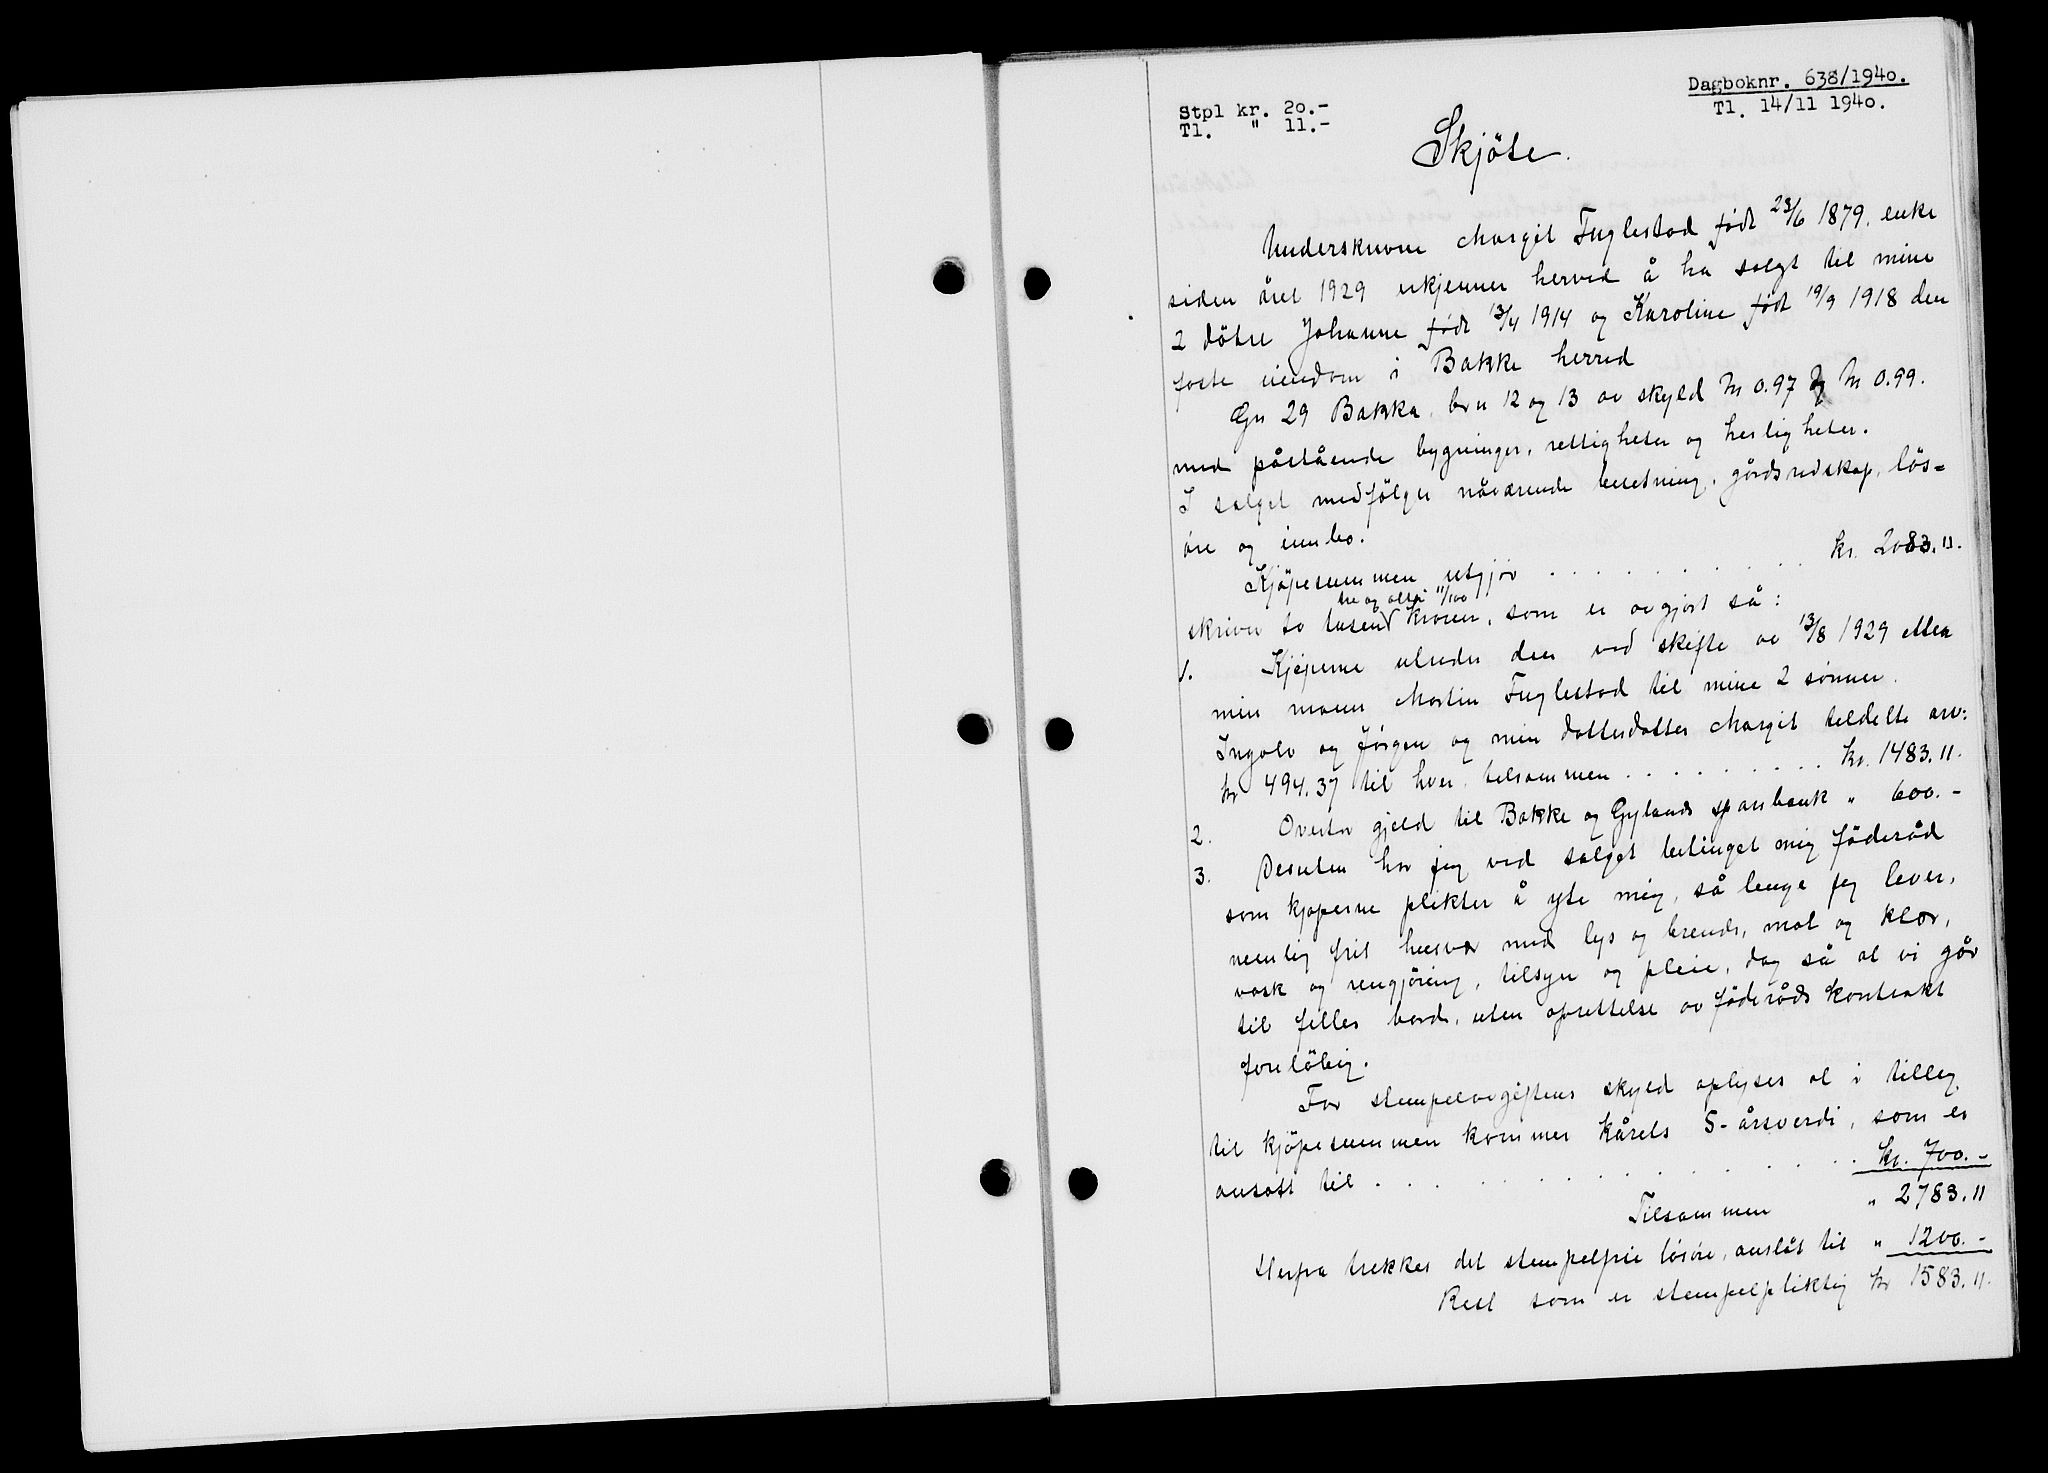 Dagboknr. 638/1940.
Tl. 14/11 1940.
Stpl kr. 20.-
Tl. " 11.-
Skjöte.
Underskrevne Margit Fuglestad født 23/6 1879, enke
siden året 1929 erkjenner herved å ha solgt til mine
2 döttre Johanne født 13/4 1914 og Karoline født 19/9 1918 den
faste eiendom i Bakke herred
Gn 29 Bakka, brn 12 og 13 av skyld M 0.97 og M 0.99.
med påstående bygninger, rettigheter og herligheter.
I salget medfölger nåværende besetning, gårdsredskap, lös=
öre og innbo.
Kjöpesummen utgjör . . . . . . . . . . . kr. 2083.11.
skriver to tusen tre og otti 11/100 kroner, som er avgjort så:
1. Kjøperne utreder den ved skifte av 13/8 1929 etter
min mann Martin Fuglestad til mine 2 sønner
Ingolv og Jørgen og min datterdatter Margit tildelte arv:
kr 494.37 til hver, tilsammen . . . . . . . . . kr. 1483.11.
2. Overtar gjeld til Bakke og Gylands sparebank " 600.-
3. Desuten har jeg ved salget betinget mig föderåd
som kjøperne plikter å yte mig, så lenge jeg lever,
nemlig frit husvær med lys og brende, mat og klær,
vask og rengjöring, tilsyn og pleie, dog så at vi går
til felles bord, uten oprettelse av föderåds kontrakt
forelöbig.
For stempelavgiftens skyld oplyses at i tillegg
til kjöpesummen kommer kårets 5-årsverdi, som er
ansatt til . . . . . . . . . . . . . kr. 700.-
Tilsammen " 2783.11
Herfra trekkes det stempelfrie løsöre, anslåt til " 1200.-
Rest som er stempelpliktig kr 1583.11.